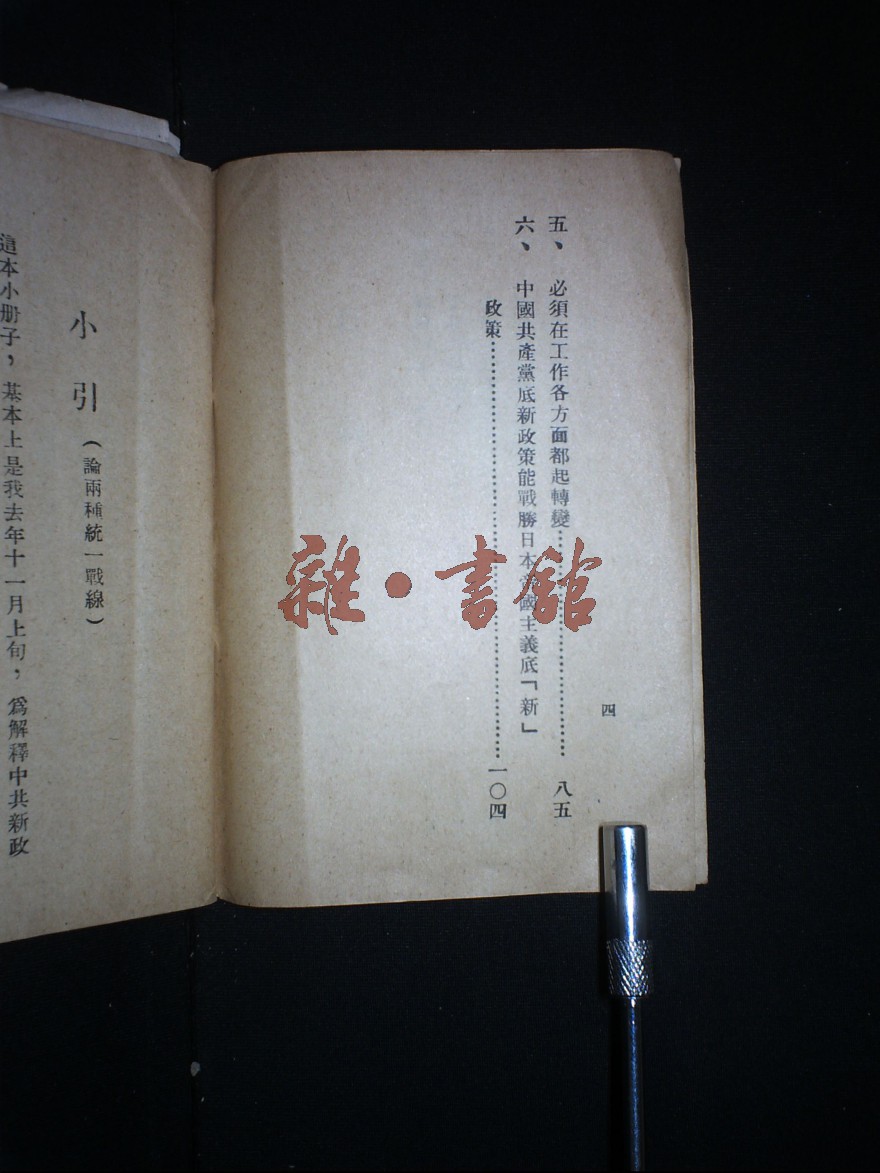 四
五、必須在工作各方面都起轉變……………………八五
六、中國共產黨底新政策能戰勝日本帝國主義底「新」
政策………………………………………一〇四
小引（論兩種統一戰線）
這本小册子，基本上是我去年十一月上旬，爲解釋中共新政
雜·書館